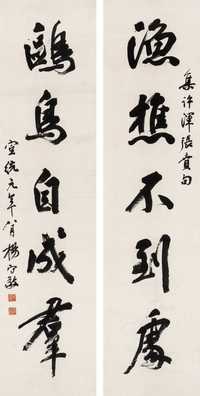 集许渾張賁句
漁樵不到處
鷗鳥自成羣
宣統元年八月楊守敬